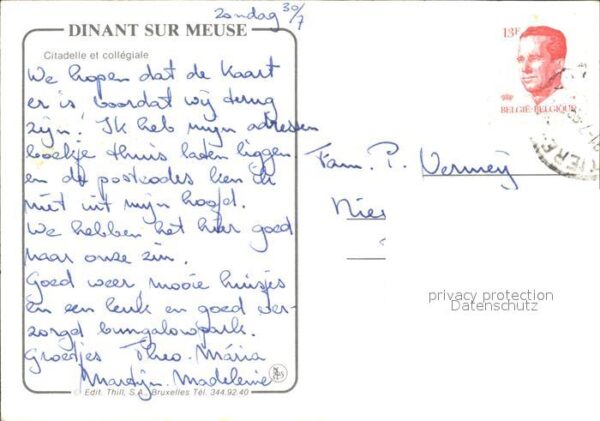 zondag 30/7
DINANT SUR MEUSE
Citadelle et collégiale
We hopen dat de kaart
er is voordat wij terug
zijn! Ik heb mijn adressen
boekje thuis laten liggen
en de postcodes ken ik
niet uit mijn hoofd.
We hebben het hier goed
naar onze zin.
Goed weer, mooie huisjes
en een leuk en goed ver-
zorgd bungalowpark.
Groetjes Theo. Mária
Martijn. Madeleine
© Edit. Thill, S.A., Bruxelles Tél. 344.92.40
13F
BELGIË-BELGIQUE
Fam. P. Vermey
Nies
privacy protection
Datenschutz